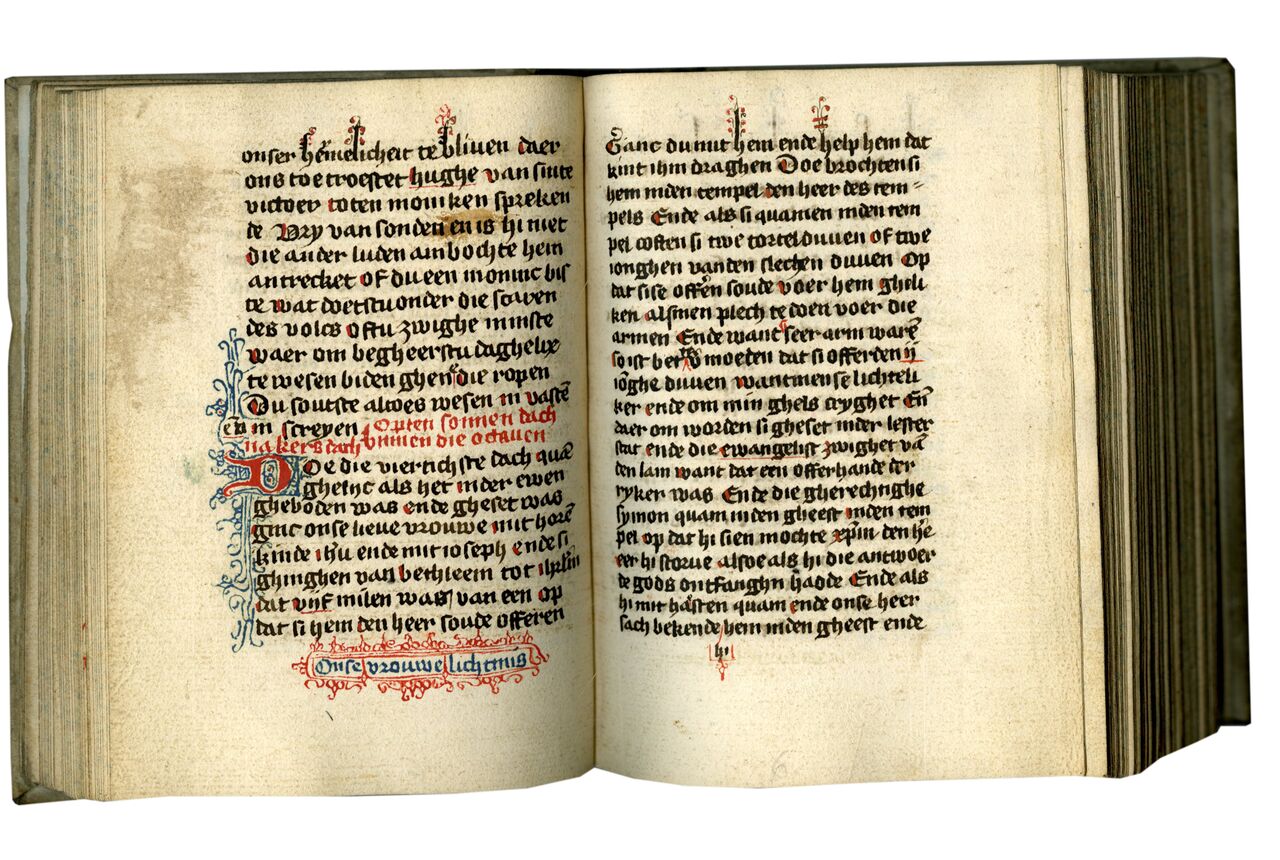 onser heimelicheit te bliven daer
ons toe troestet hughe van sinte
victoer toten moniken spreken
de Vry van sonden en is hi niet
die ander luden ambochte hem
antrecket of du een moninc bis
te wat doetstu onder die scaren
des volcs oftu zwighe minste
waer om begheerstu daghelix
te wesen biden ghenē die ropen
Du soutste altoes wesen in vastē
eñ in screyen Opten sonnen dach
na kersdach binnen die octauen
Doe die viertichste dach quā
ghelijc als het inder ewen
gheboden was ende gheset was
ginc onse lieve vrouwe mit horē
kinde ihū ende mit ioseph ende si
ghinghen van bethleem tot ihrlm̄
dat vijf milen was van een Op
dat si hem den heer soude offeren
Onse vrouwe lichtmis
Ganc du mit hem ende help hem dat
kint ihm draghen Doe brochten si
hem inden tempel den heer des tem=
pels Ende als si quamen inden tem
pel coften si twe tortelduven of twe
ionghen vanden slechten duven Op
dat sise offeren soude voer hem gheli
ken alsmen plech te doen voer die
armen Ende want seer arm warē
so ist moeden dat si offerden ij
iōghe duven want men se lichteli
ker ende om min ghels cryghet Eñ
daer om worden si gheset inder lester
stat ende die ewangelist zwighet vā
den lam want dat een offerhande der
ryker was Ende die gherechtighe
symon quam inden gheest inden tem
pel op dat hi sien mochte xp̄m den he
eer hi storve alsoe als hi die antwoer
de gods ontfanghn hadde Ende als
hi mit hasten quam ende onse heer
sach bekende hem inden gheest ende
hi